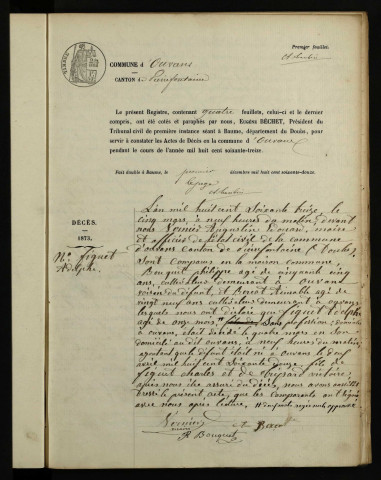 Premier feuillet.
COMMUNE d'Ouvans
CANTON de Pierrefontaine
Le présent Registre, contenant quatre feuillets, celui-ci et le dernier
compris, ont été cotés et paraphés par nous, Evadns BÉCHET, Président du
Tribunal civil de première instance séant à Baume, département du Doubs, pour
servir à constater les Actes de Décès en la commune d'Ouvans
pendant le cours de l'année mil huit cent soixante-treize.
Fait double à Baume, le premier décembre mil huit cent soixante-douze.
DÉCÈS.
1873.
N° 1er Figuet
Adolphe.
L'an mil huit cent soixante treize, le
cinq mars, à neuf heures du matin, devant
nous Vernier Augustin Donat, maire
et officier de l'état civil de la commune
d'ouvans canton de pierrefontaine (Doubs)
sont comparus en la maison commune
Bouquet philippe agé de cinquante cinq
ans, cultivateur demeurant à ouvans
voisin du défunt, et Aimable agé de
vingt neuf ans cultivateur demeurant à ouvans
lesquels nous ont déclaré que figuet adolphe
agé de onze mois, sans profession, domicilié
à ouvans, était décédé le quatre mars en son
domicile au dit ouvans, à neuf heures du matin,
ajoutant que le défunt était né à ouvans le
avril mil huit cent soixante douze, fils de
figuet charles et de victoire;
après nous être assuré du décès, nous avons
dressé le présent acte, que les comparants ont signé
avec nous après lecture.
Vernier
P. Bouquet